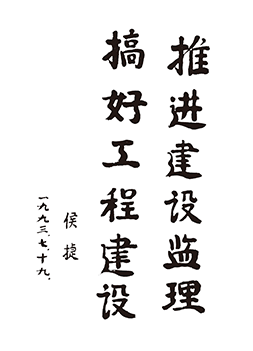 推进建设监理
搞好工程建设
侯捷
一九九三.七.十九.